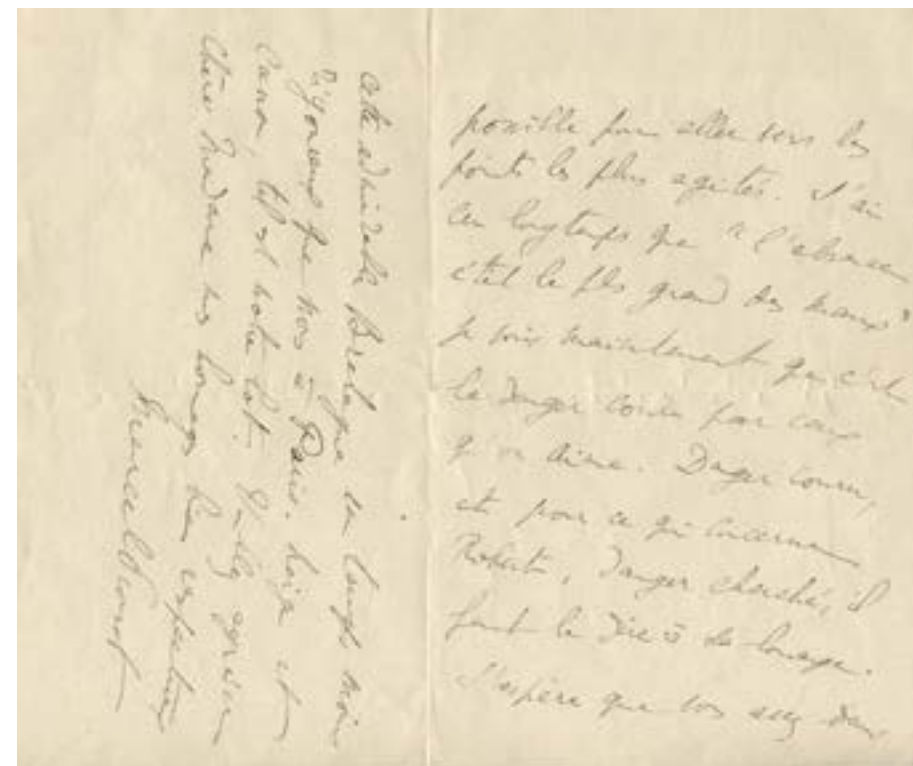 possible pour aller vers les
points les plus agités. J'ai
cru longtemps que "l'absence
était le plus grand des maux"
je vois maintenant que c'est
le danger couru par ceux
qu'on aime. Danger couru,
et pour ce qui concerne
Robert, danger cherché, il
faut le dire à sa louange.
J'espère que vous avez dans
cette admirable Bretagne un temps moins
rigoureux que nous à Paris. Neige et
canon, tel est notre lot. Daignez agréer
chère Madame mes hommages les respectueux
Marcel Proust